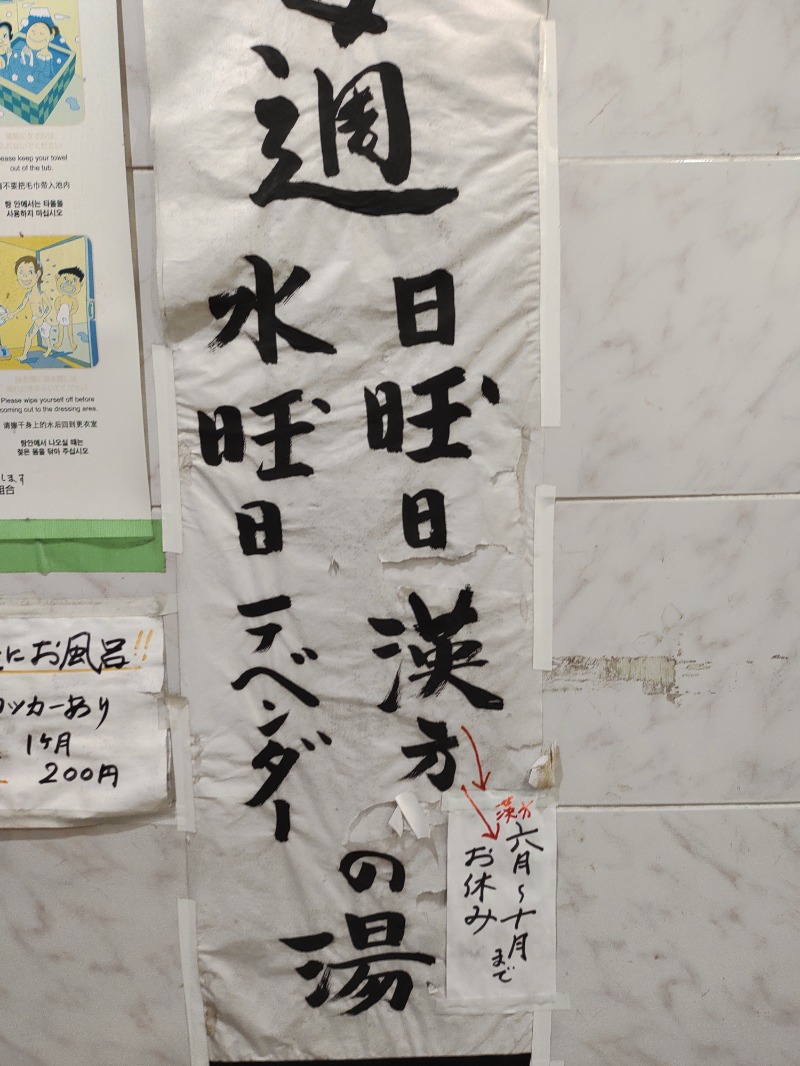 週
日曜日 漢方
水曜日 ラベンダー
の湯
漢方
六月〜十月まで
お休み
Please keep your towel
out of the tub.
不要把毛巾帶入池内
탕 안에서는 타올을
사용하지 마십시오
Please wipe yourself off before
coming out to the dressing area.
请擦干身上的水后回到更衣室
탕안에서 나오실 때는
젖은 몸을 닦아 주십시오
します
組合
にお風呂!!
ロッカーあり
1ヶ月
200円